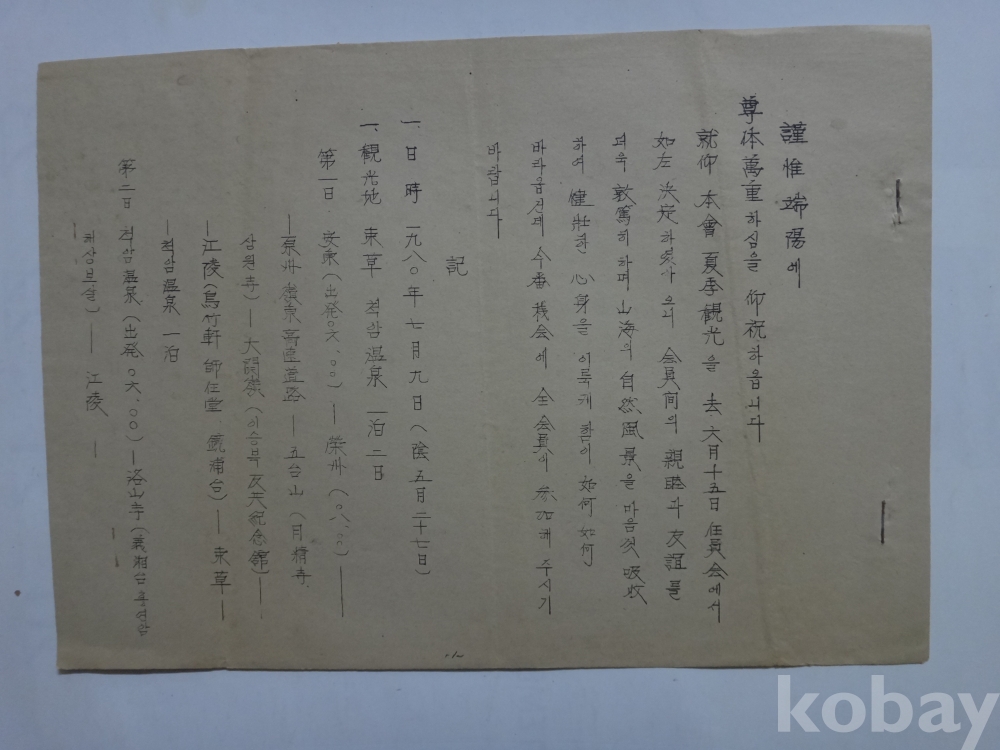 謹惟端陽에
尊体萬重하심을 仰祝하옵니다
就仰 本會 夏季観光을 去 六月十五日 任員会에서
如左 決定하였사오니 会員间의 親睦과 友誼를
더욱 敦篤히하며 山海의 自然風景을 마음껏 吸收
하여 健壮한 心身을 이룩케 함이 如何 如何
바라옵건데 今番 機会에 全会員이 参加해 주시기
바랍니다
記
一、日時 一九八〇年七月九日(陰五月二十七日)
一、観光地 束草 척암温泉 一泊二日
第一日 安東(出発〇六.〇〇) — 榮州(〇八.〇〇) —
— 嶺東高速道路 — 五台山(月精寺
상원寺) — 大関嶺(이승복 反共紀念館) —
— 江陵(烏竹軒 師任堂 鏡浦台) — 束草 —
— 척암温泉 一泊
第二日 척암温泉(出発 〇六.〇〇) — 洛山寺(義湘台 홍연암
해상보살) — 江陵 —
kobay